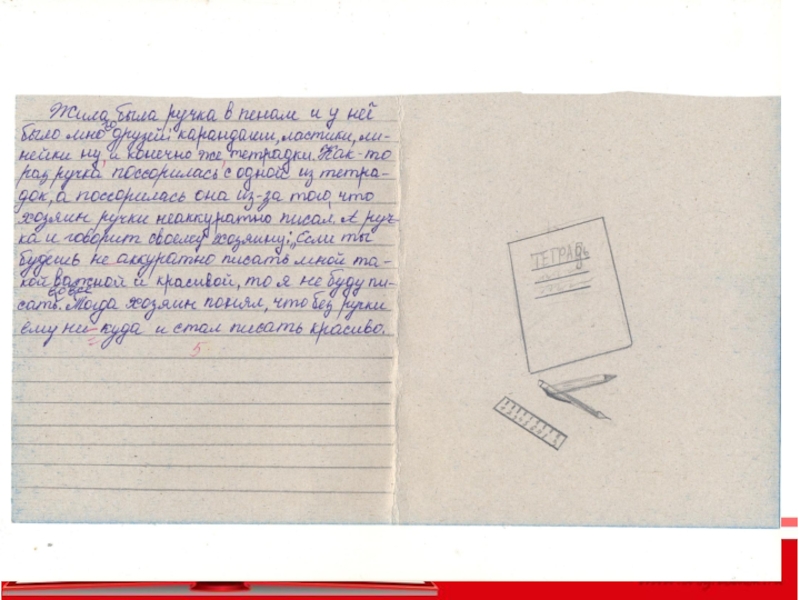 Жила была ручка в пенам и у неё
было много друзей: карандаши, ластики, ли-
нейки ну, и конечно же, тетрадки. Как-то
раз ручка поссорилась с одной из тетра-
док, а поссорилась она из-за того, что
хозяин ручки неаккуратно писал. А руч-
ка и говорит своему хозяину: „Если ты
будешь не аккуратно писать мной та-
кой важной и красивой, то я не буду пи-
сать вообще. Тогда хозяин понял, что без ручки
ему ни-куда и стал писать красиво.
5
ТЕТРАДЬ